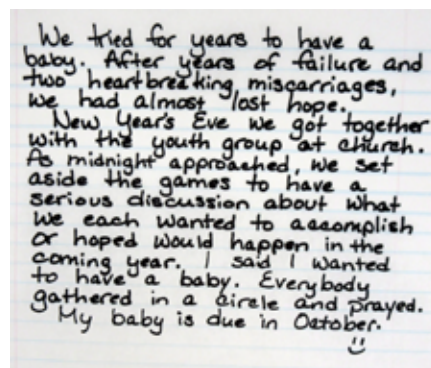 We tried for years to have a
baby. After years of failure and
two heartbreaking, miscarriages,
we had almost lost hope.
New Year's Eve we got together
with the youth group at church.
As midnight approached, we set
aside the games to have a
serious discussion about what
we each wanted to accomplish
or hoped would happen in the
coming year. I said I wanted
to have a baby. Everybody
gathered in a circle and prayed.
My baby is due in October.